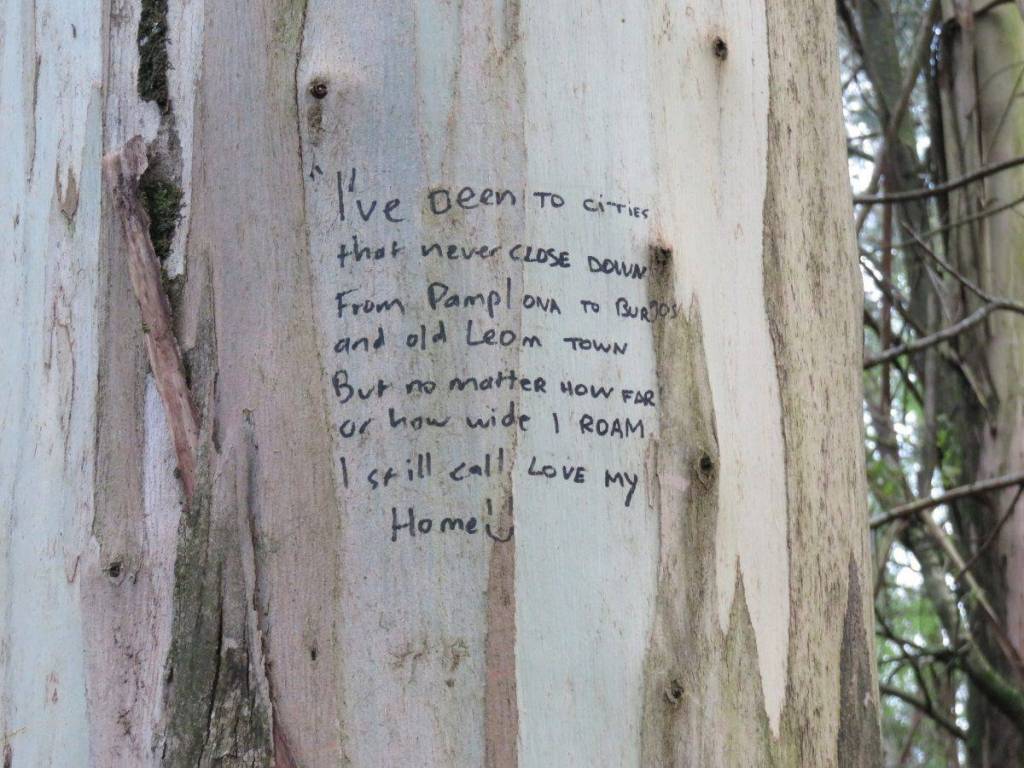 "I've been TO CITIES
that never CLOSE DOWN
From Pamplona TO BURGOS
and old Leom TOWN
But no matter HOW FAR
or how wide I ROAM
I still call LOVE MY
Home!